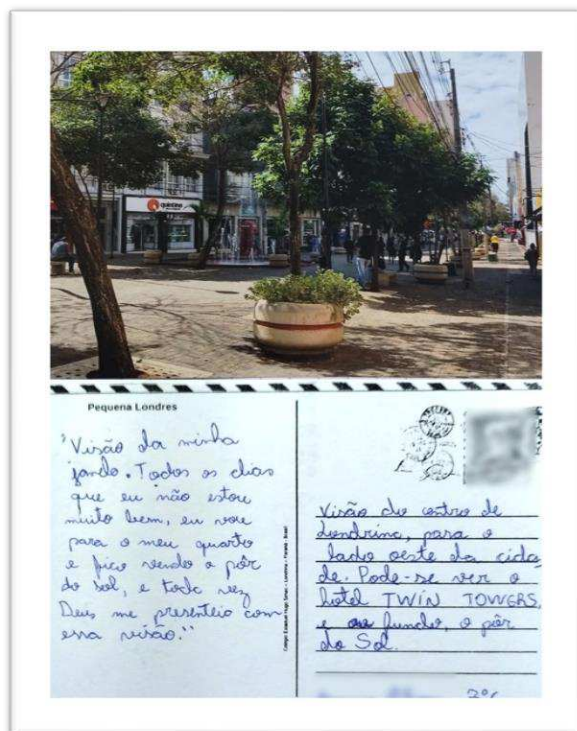 quintino
Pequena Londres
"Visão da minha
janela. Todos os dias
que eu não estou
muito bem, eu vou
para o meu quarto
e fico vendo o pôr
do sol, e toda vez
Deus me presenteia com
essa visão."
Colégio Estadual Hugo Simas – Londrina – Paraná - Brasil
Visão do centro de
Londrina, para o
lado oeste da cida
de. Pode-se ver o
hotel TWIN TOWERS,
e ao fundo, o pôr
do Sol.